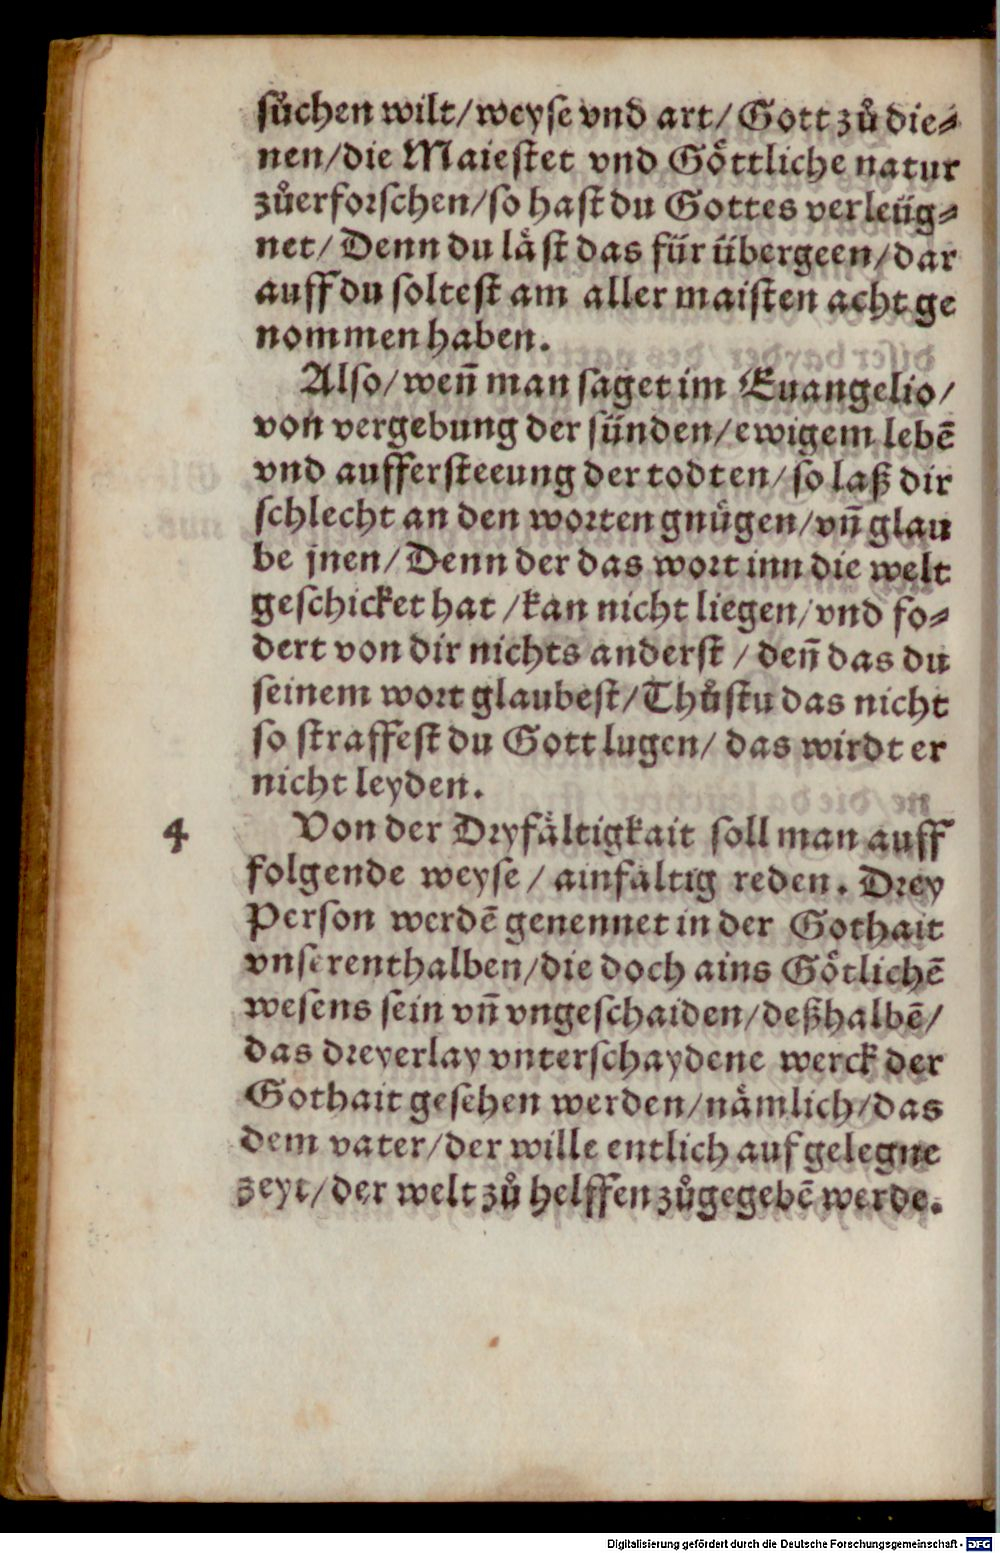 sůchen wilt/weyse vnd art/ Gott zů die⸗
nen/die Maiestet vnd Göttliche natur
zůerforschen/so hast du Gottes verleüg⸗
net/ Denn du läst das für übergeen/dar
auff du soltest am aller maisten acht ge
nommen haben.
Also/wen̄ man saget im Euangelio/
von vergebung der sünden/ewigem lebē
vnd aufferstееung der todten/so laß dir
schlecht an den worten gnügen/vn̄ glau
be jnen/Denn der das wort inn die welt
geschicket hat/kan nicht liegen/vnd fo⸗
dert von dir nichts anderst/ den̄ das du
seinem wort glaubest/Thůstu das nicht
so straffest du Gott lugen/ das wirdt er
nicht leyden.
4 Von der Dryfältigkait soll man auff
folgende weyse/ ainfältig reden. Drey
Person werdē genennet in der Gothait
vnserenthalben/die doch ains Götlichē
wesens sein vn̄ vngeschaiden/deßhalbē/
das dreyerlay vnterschaydene werck der
Gothait gesehen werden/nämlich/das
dem vater/der wille entlich auf gelegne
zeyt/der welt zů helffen zůgegebē werde.
Digitalisierung gefördert durch die Deutsche Forschungsgemeinschaft - DFG